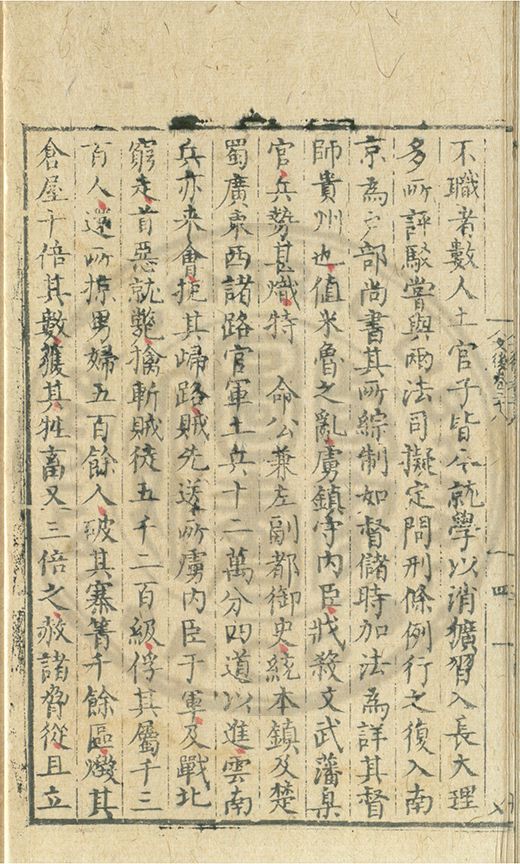 不職者數人土官子皆令就學以消獷習入長大理
多所評駁嘗與兩法司擬定問刑條例行之復入南
京為戶部尚書其所綜制如督儲時加法為詳其督
師貴州也值米魯之亂虜鎮守內臣戕殺文武藩臬
官兵勢甚熾特 命公兼左副都御史統本鎮及楚
蜀廣東西諸路官軍土兵十二萬分四道以進雲南
兵亦來會扼其歸路賊先送所虜內臣于軍及戰北
窮走首惡就斃擒斬賊徒五千二百級俘其屬千三
百人還所掠男婦五百餘人破其寨箐千餘區燬其
倉屋十倍其數獲其牲畜又三倍之赦諸脅從且立
四